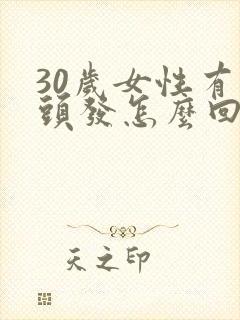 30歲女性有
頭發怎麼回
天之印